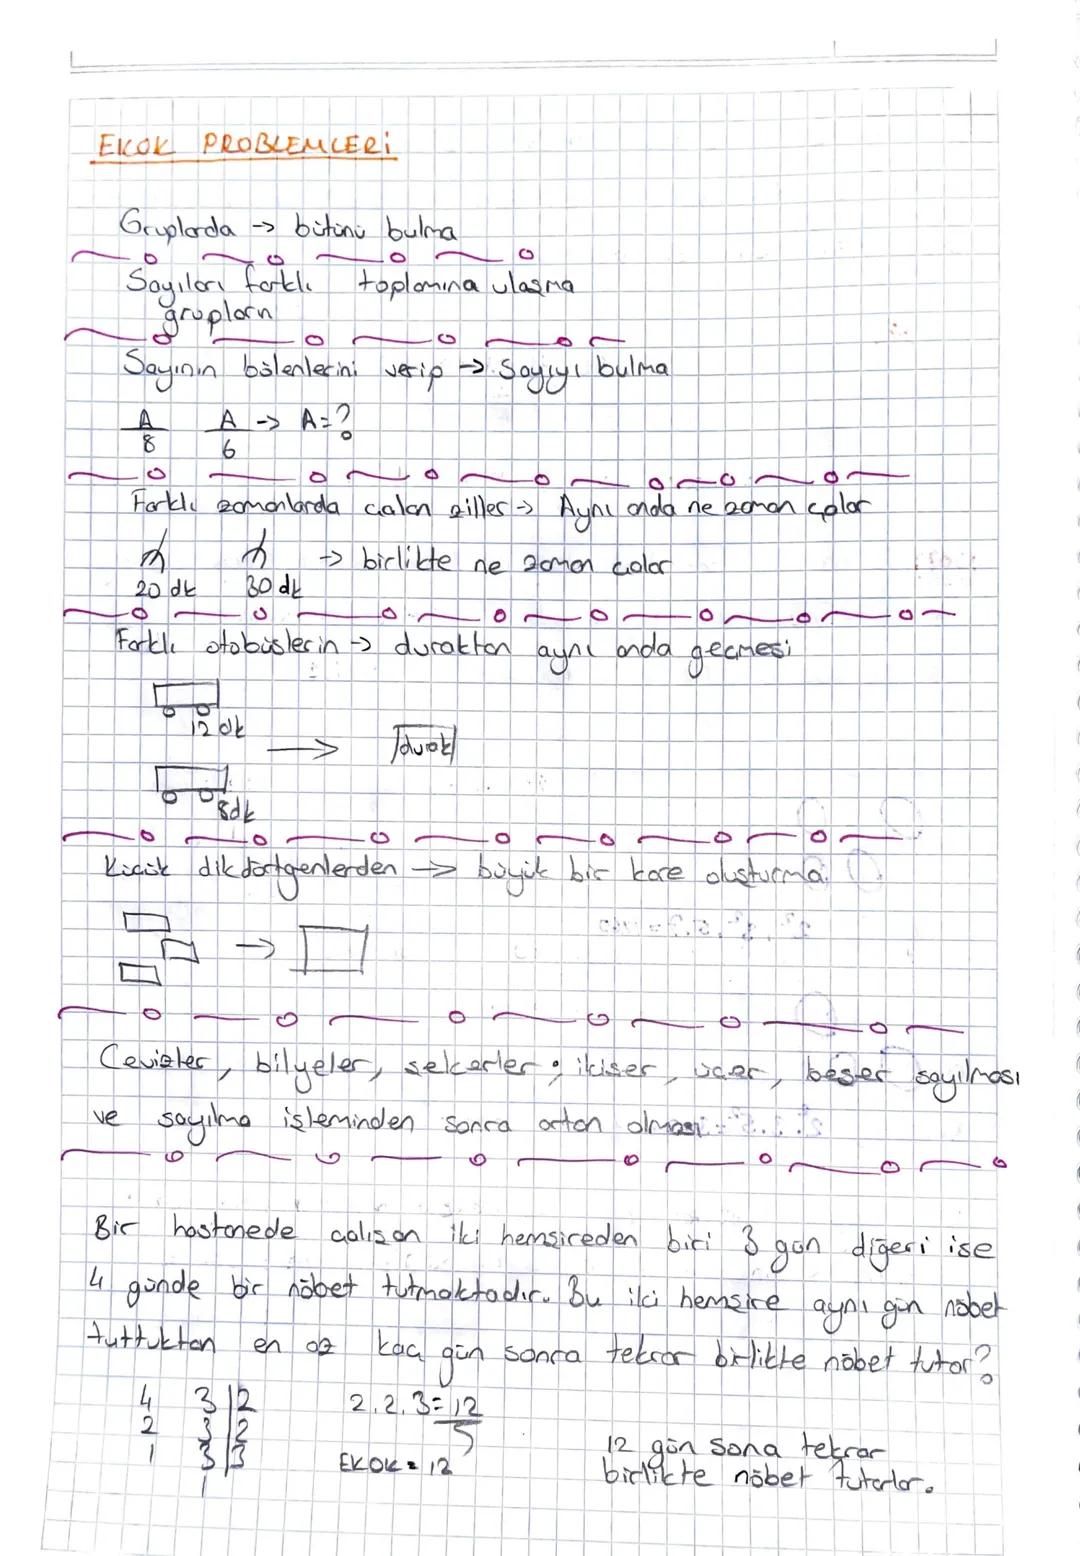 EKOK PROBLEMLERİ
Gruplarda → bütünü bulma
Sayıları farklı toplamına ulaşma
grupların
Sayının bölenlerini verip → Sayıyı bulma
A/8 A/6 → A=?
Farklı zamanlarda çalan ziller → Aynı anda ne zaman çalar
→ birlikte ne zaman çalar
20 dk 30 dk
Farklı otobüslerin → duraktan aynı anda geçmesi
12 dk
→ durak
8dk
Küçük dikdörtgenlerden → büyük bir kare oluşturma.
→
Cevizler, bilyeler, şekerler; ikişer, üçer, beşer sayılması
ve sayılma işleminden sonra artan olması
Bir hastanede çalışan iki hemşireden biri 3 gün diğeri ise
4 günde bir nöbet tutmaktadır. Bu iki hemşire aynı gün nöbet
tuttuktan en az kaç gün sonra tekrar birlikte nöbet tutar?
4 3 | 2 2.2.3=12
2 3 | 2
1 3 | 3 EKOK = 12
1
12 gün sona tekrar
birlikte nöbet tutarlar.